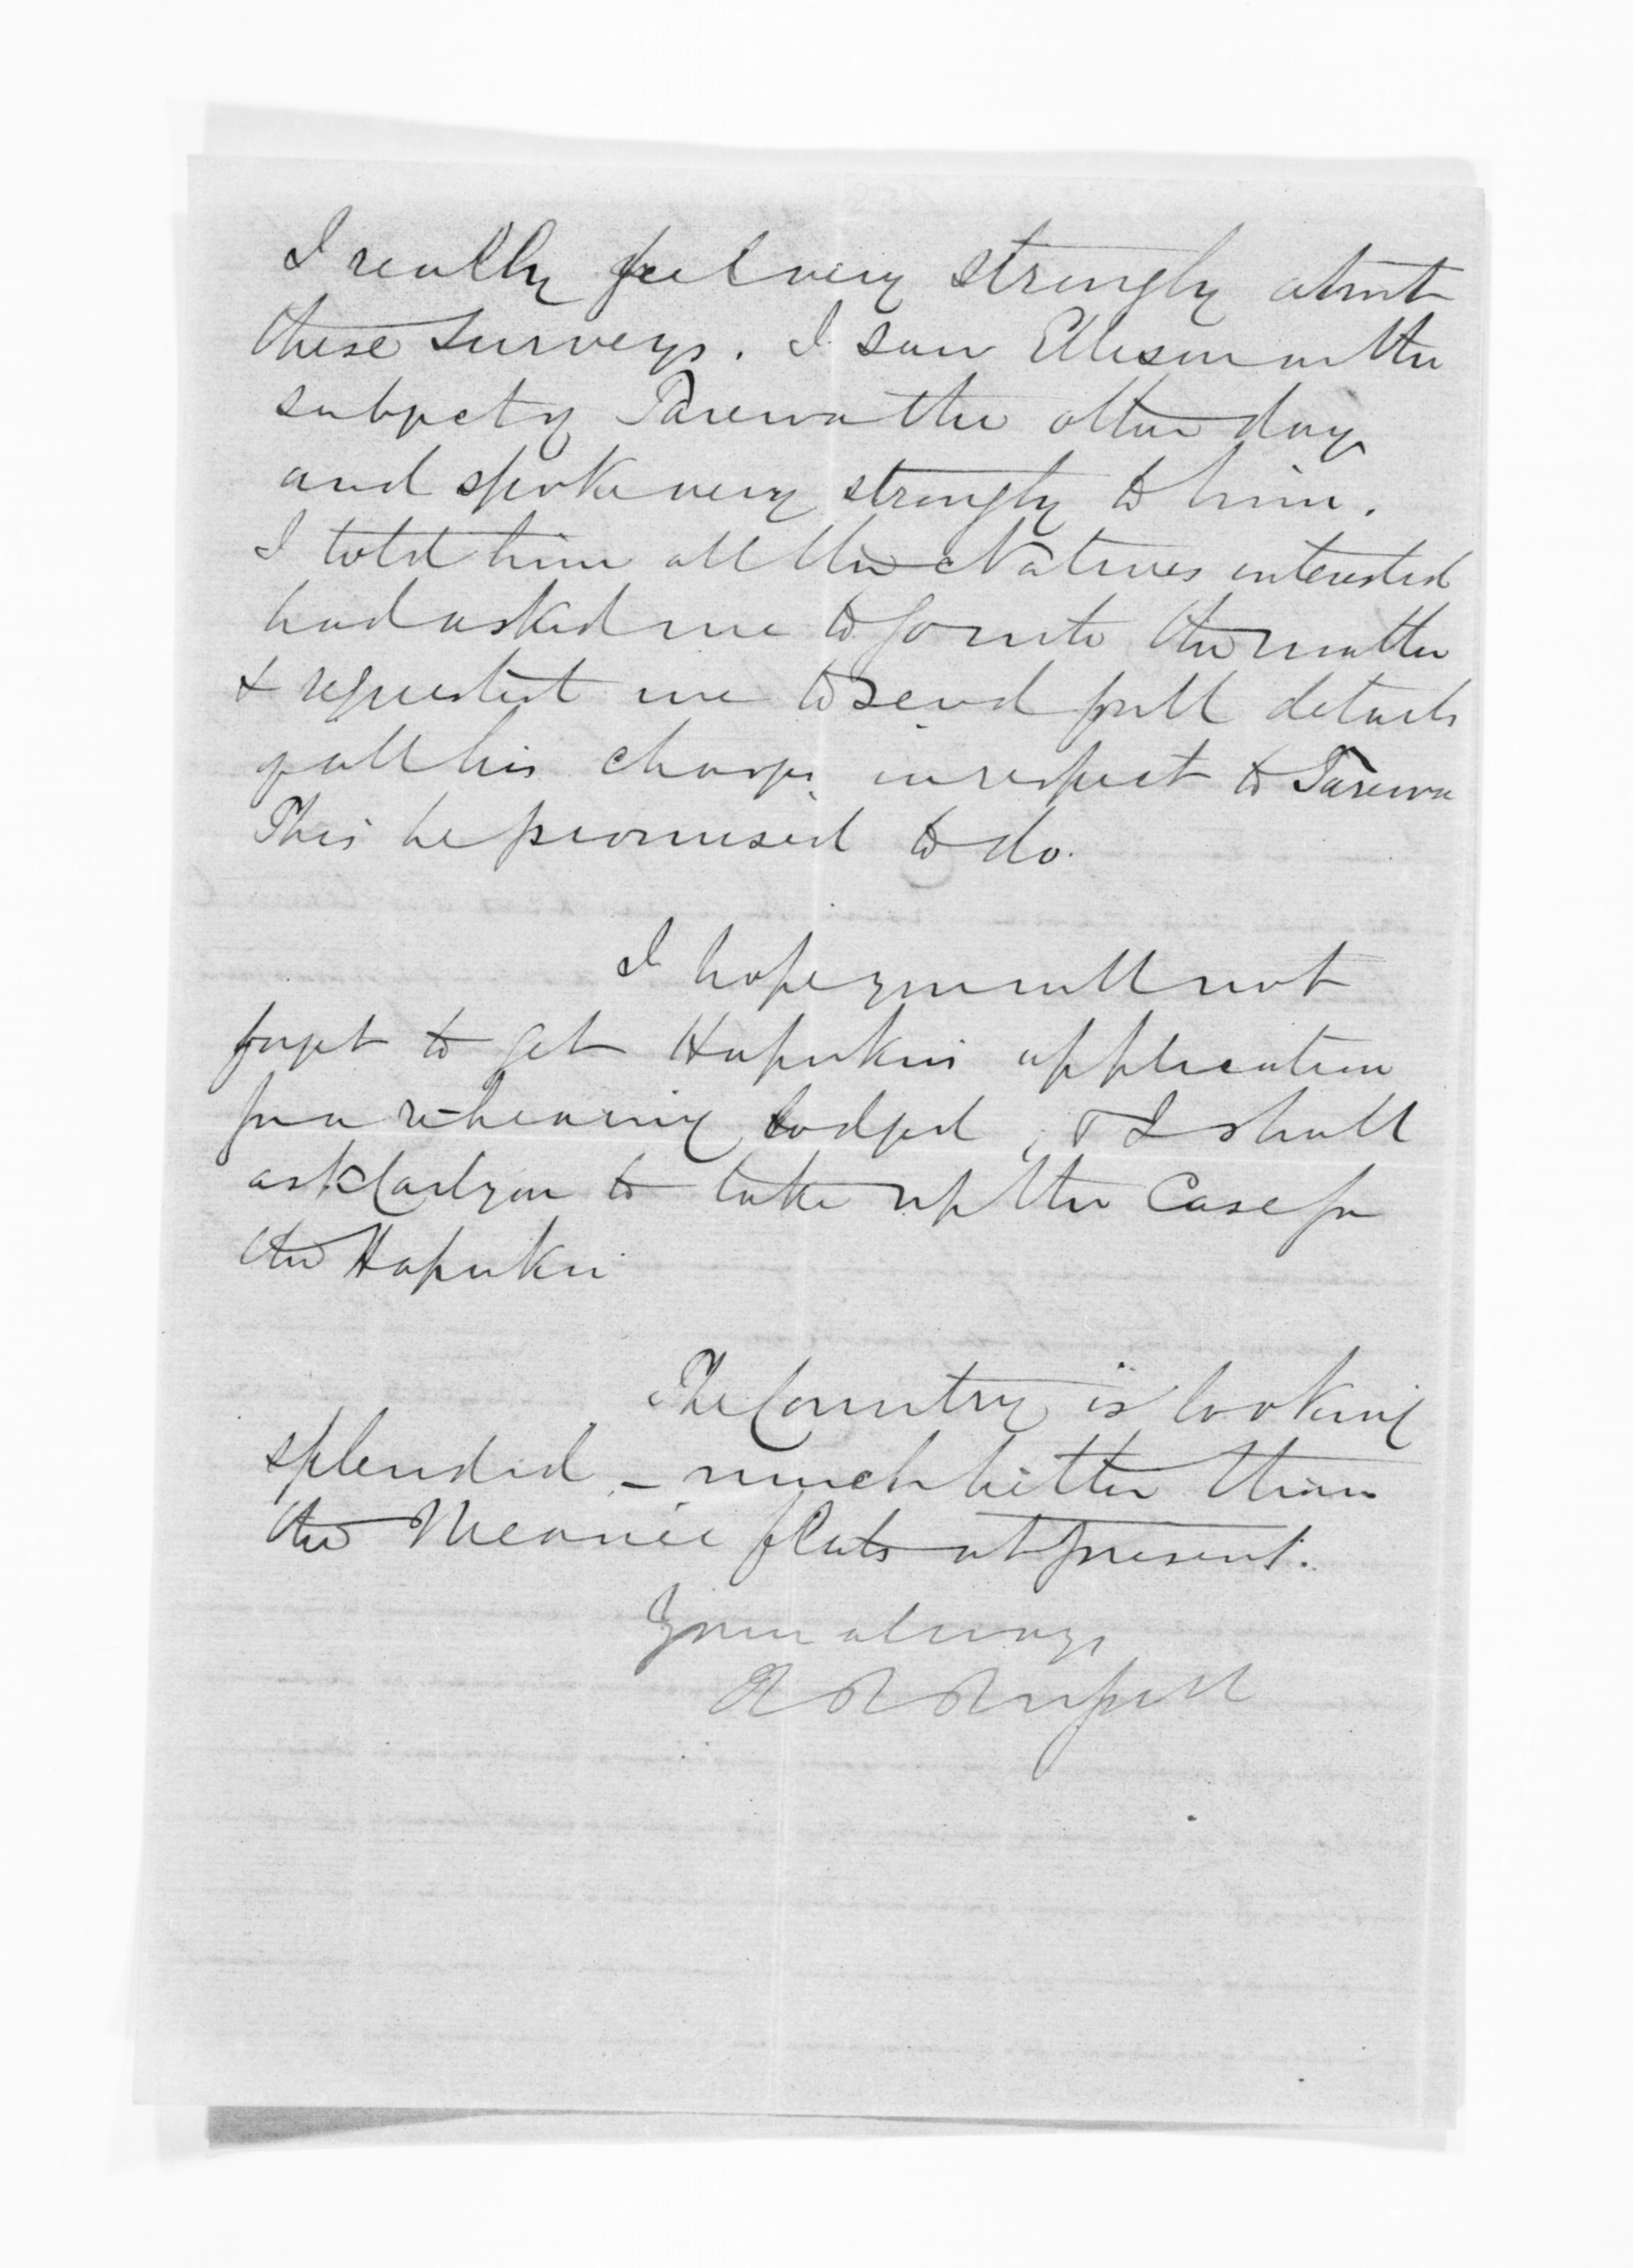 I really feel very strongly about
these surveys. I saw Ellison on the
subject of Tarewa the other day
and spoke very strongly to him.
I told him all the Natives interested
had asked me to go into the matter
& requested me to send full details
of all his charges in respect to Tarewa
This he promised to do.
I hope you will not
forget to get Hapukus application
for a rehearing lodged, & I shall
ask Carlyon to take up the Case for
the Hapuku
The Country is looking
splendid – much better than
the Meanee flats at present.
Yours always